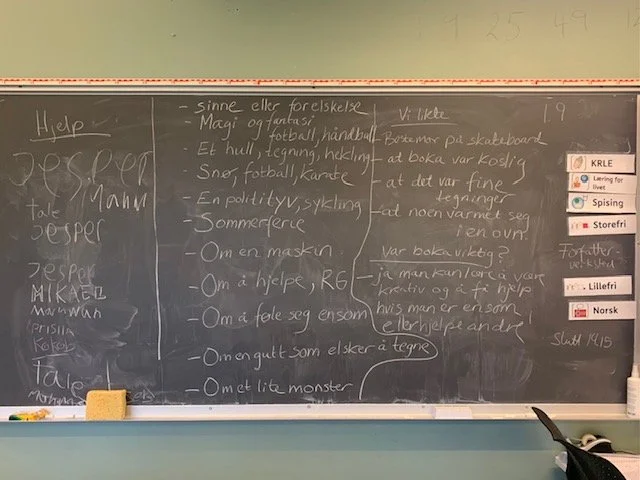 1 25 49
Hjelp
Jesper
Manu
Tale
Jesper
Jesper
MIKAEL
Marwan
Prisila
Kokob
Tale
- sinne eller forelskelse
- Magi og fantasi
fotball, håndball
- Et hull, tegning, hekling
- Snø, fotball, karate
- En politityv, sykling
- Sommerferie
- Om en maskin
- Om å hjelpe, RG
- Om å føle seg ensom
- Om en gutt som elsker å tegne
- Om et lite monster
Vi likte
- Bestemor på skateboard
- at boka var koslig
- at det var fine
tegninger
- at noen varmet seg
i en ovn.
Var boka viktig?
- ja man kan lære å være
kreativ og å få hjelp
hvis man er ensom
eller hjelpe andre
1.9
KRLE
Læring for
livet
Spising
Storefri
Forfatter-
verksted
Lillefri
Norsk
Slutt 14.15